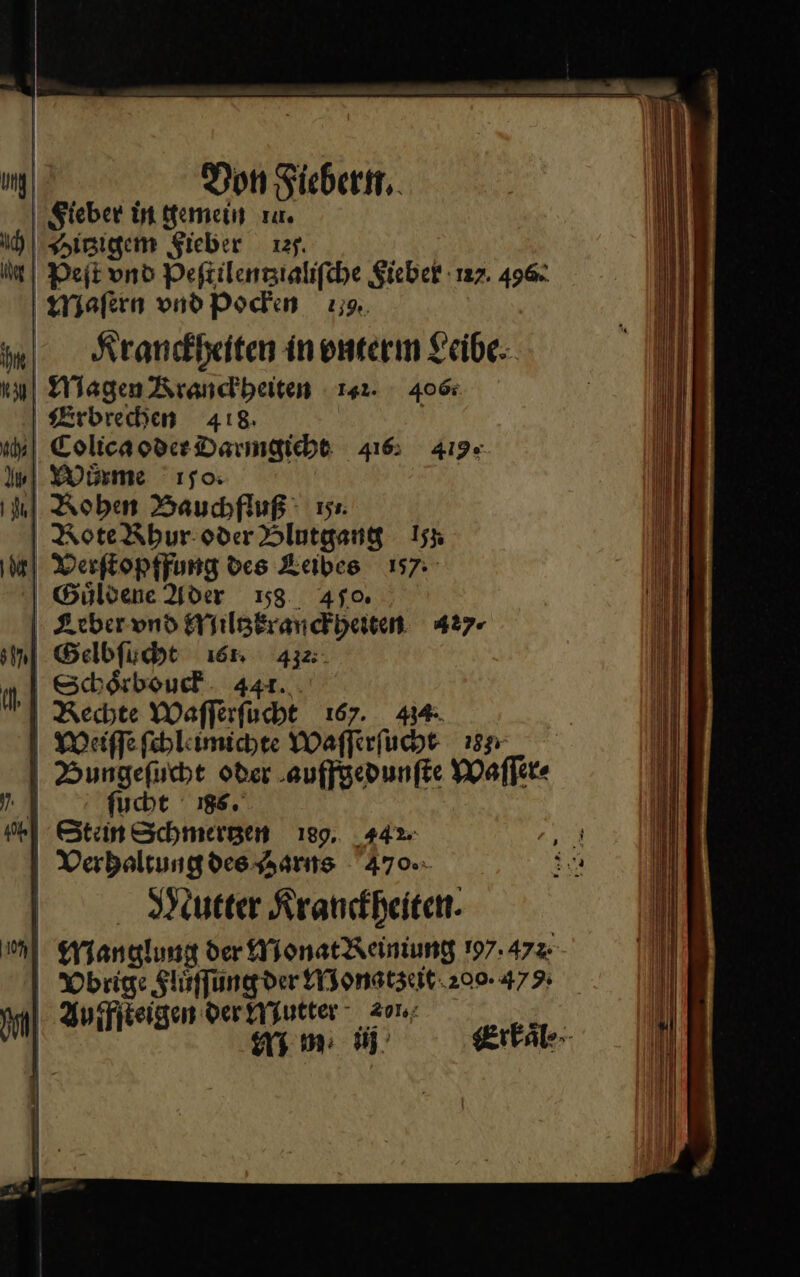 Von Fiebern.
Fieber in gemein 111.
Hitzigem Fieber 125.
Peſt vnd Peſtilentzialiſche Fieber 127. 496.
Maſern vnd Pocken 139.
Kranckheiten in vnterm Leibe.
Magen Kranckheiten 142. 406.
Erbrechen 418.
Colica oder Darmgicht 416. 419.
Wuͤrme 150.
Rohen Bauchfluß 151.
Rote Rhur oder Blutgang 155.
Verſtopffung des Leibes 157.
Guͤldene Ader 158. 450.
Leber vnd Miltzkranckheiten 427.
Gelbſucht 161. 432.
Schoͤrbouck 441.
Rechte Waſſerſucht 167. 434.
Weiſſe ſchleimichte Waſſerſucht 183.
Bungeſucht oder auffgedunſte Waſſer⸗
ſucht 186.
Stein Schmertzen 189. 442.
Verhaltung des Harns 470.
Mutter Kranckheiten.
Manglung der Monat Reiniung 197. 472.
Vbrige Fluͤſſung der Monatzeit 200. 479.
Auffſteigen der Mutter 201.
M m iij Erkaͤl⸗